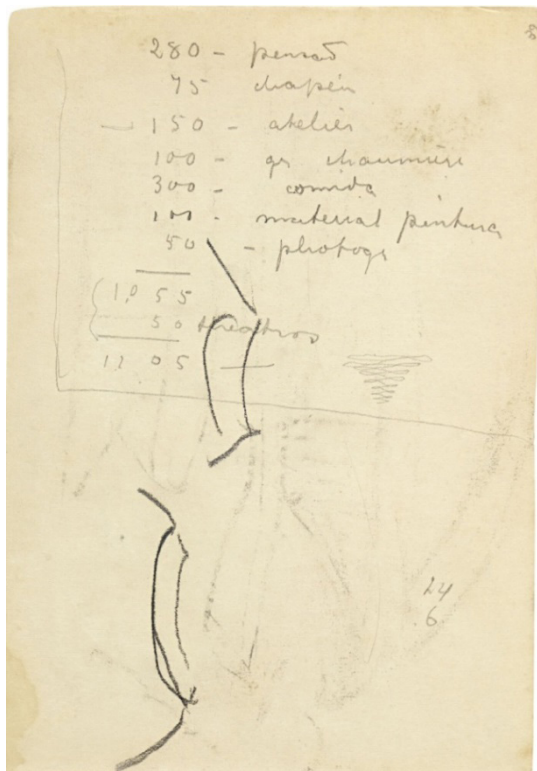 280 - pensão
75 chapéu
— 150 - atelier
100 - gr chaumière
300 - comida
100 - material pintura
50 - photogr
1,055
50 theatros
1105 —
24
6